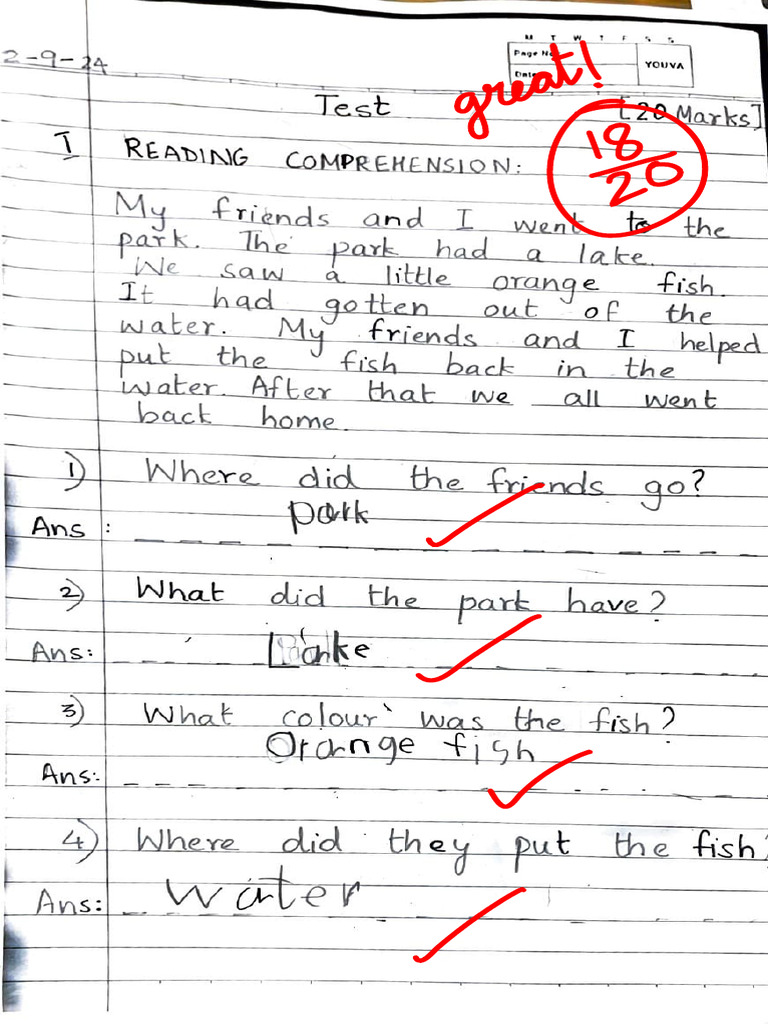 M T W T F S S
Page No
YOUVA
Date
2-9-24
great!
Test [20 Marks]
18/20
I READING COMPREHENSION:
My friends and I went to the
park. The park had a lake.
We saw a little orange fish.
It had gotten out of the
water. My friends and I helped
put the fish back in the
water. After that we all went
back home.
1) Where did the friends go?
park
Ans :
2) What did the park have?
Ans: Lake
3) What colour was the fish?
Orange fish
Ans:
4) Where did they put the fish?
Ans: water